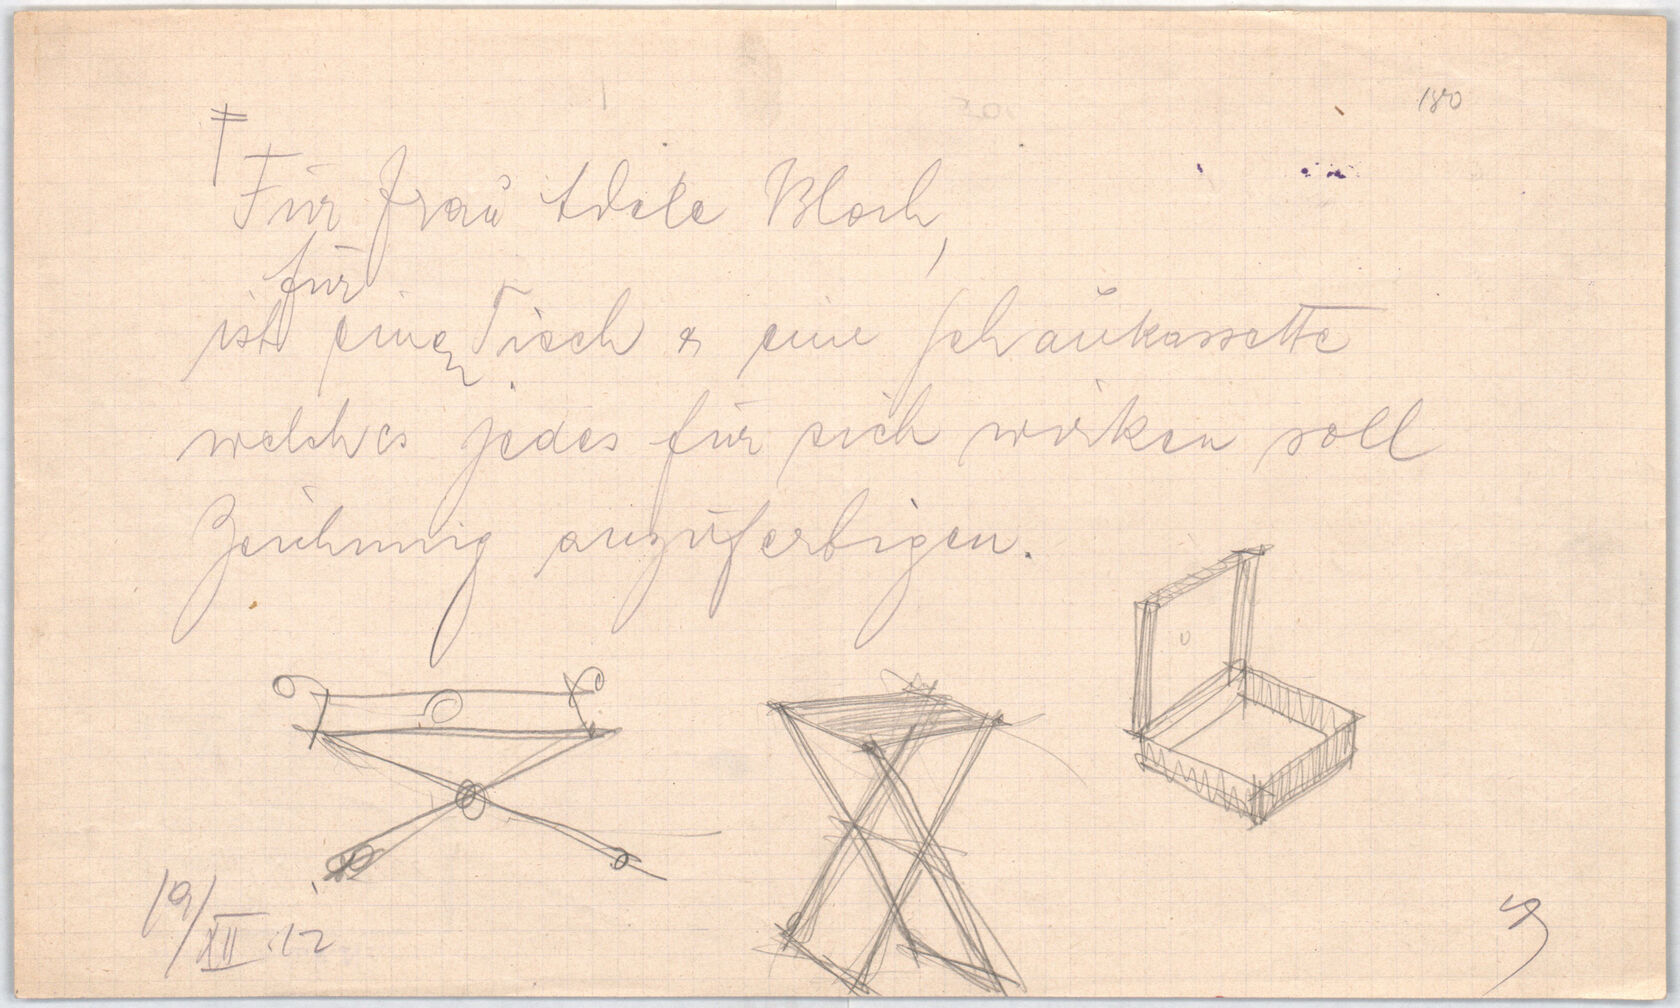 180
Für Frau Adele Bloch,
für
ist einen Tisch & eine Schaukassette
welches jedes für sich wirken soll
Zeichnung anzufertigen.
19/XII.12